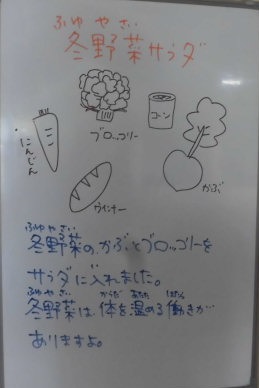 ふゆ や さい
冬野菜サラダ
ブロッコリー
コーン
にんじん
かぶ
ウインナー
ふゆ やさい
冬野菜の、かぶとブロッコリーを
サラダに入れました。
ふゆ やさい からだ あたた はたら
冬野菜は、体を温める働きが
ありますよ。